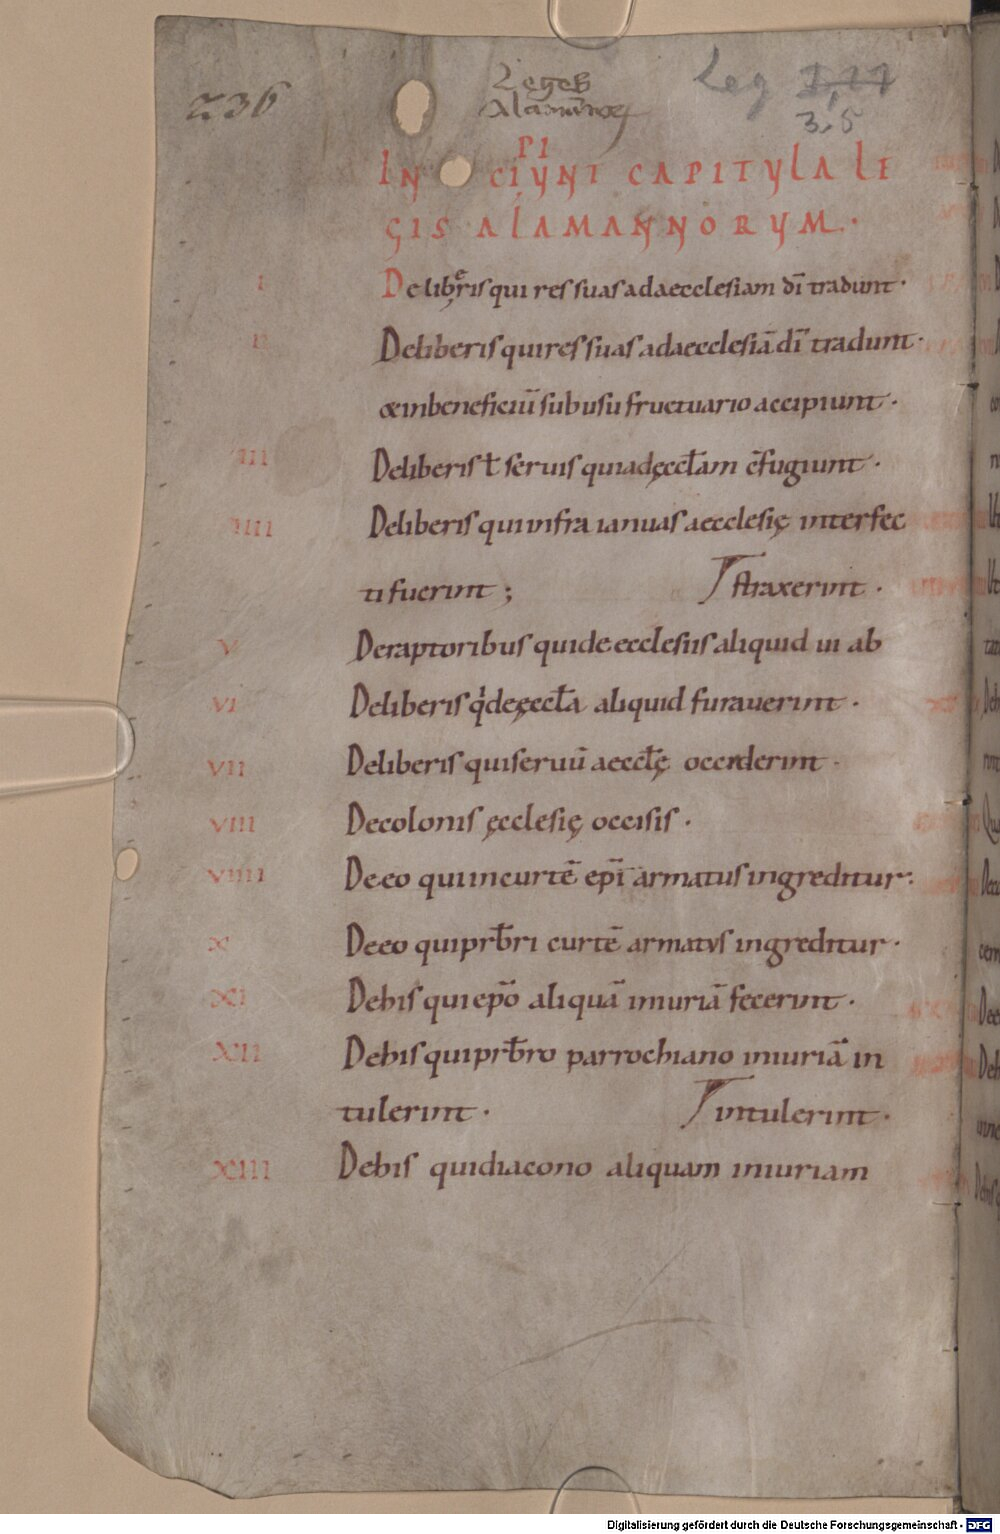 236
Leges
Alamañoꝝ
Leg 1,11
3,5
PI
IN CIVNT CAPITVLA LE
GIS ALAMANNORVM.
I De libeꝛis qui res suas ad aecclesiam dī tradunt·
II De liberis qui res suas ad aecclesiā dī tradunt·
& in beneficiū sub usu fructuario accipiunt·
III De liberis ł seruis qui ad ęccłam c̄fugiunt·
IIII De liberis qui infra ianuas aecclesię interfec
ti fuerint; straxerint·
V De raptoribus qui de ecclesiis aliquid ui ab
VI De liberis q̇ de ęccła aliquid furauerint·
VII De liberis qui seruū aeccłę occiderint·
VIII De colonis ęcclesię occisis·
VIIII De eo qui in curtē ep̄i armatus ingreditur:
X De eo qui prb̄ri curtē armatus ingreditur·
XI De his qui ep̄o aliquā iniuriā fecerint·
XII De his qui prb̄ro parrochiano iniuriā in
tulerint· intulerint·
XIII De his qui diacono aliquam iniuriam
Digitalisierung gefördert durch die Deutsche Forschungsgemeinschaft - DFG